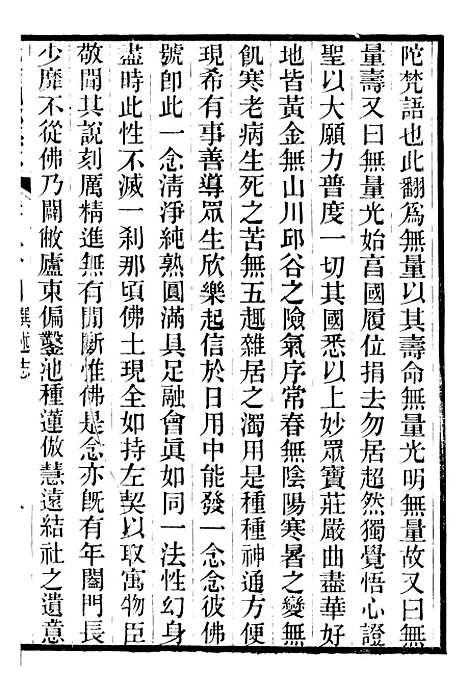 陀梵語也此翻爲無量以其壽命無量光明無量故又曰無
量壽又曰無量光始亯國履位捐去勿居超然獨覺悟心證
聖以大願力普度一切其國悉以上妙眾寶莊嚴曲盡華好
地皆黃金無山川邱谷之險氣序常春無陰陽寒暑之變無
飢寒老病生死之苦無五趣雜居之濁用是種種神通方便
現希有事善導眾生欣樂起信於日用中能發一念念彼佛
號卽此一念淸淨純熟圓滿具足融會眞如同一法性幻身
盡時此性不滅一刹那頃佛土現全如持左契以取寓物臣
敬聞其說刻厲精進無有閒斷惟佛是念亦旣有年闔門長
少靡不從佛乃闢敝廬東偏鑿池種蓮倣慧遠結社之遺意
撰述志